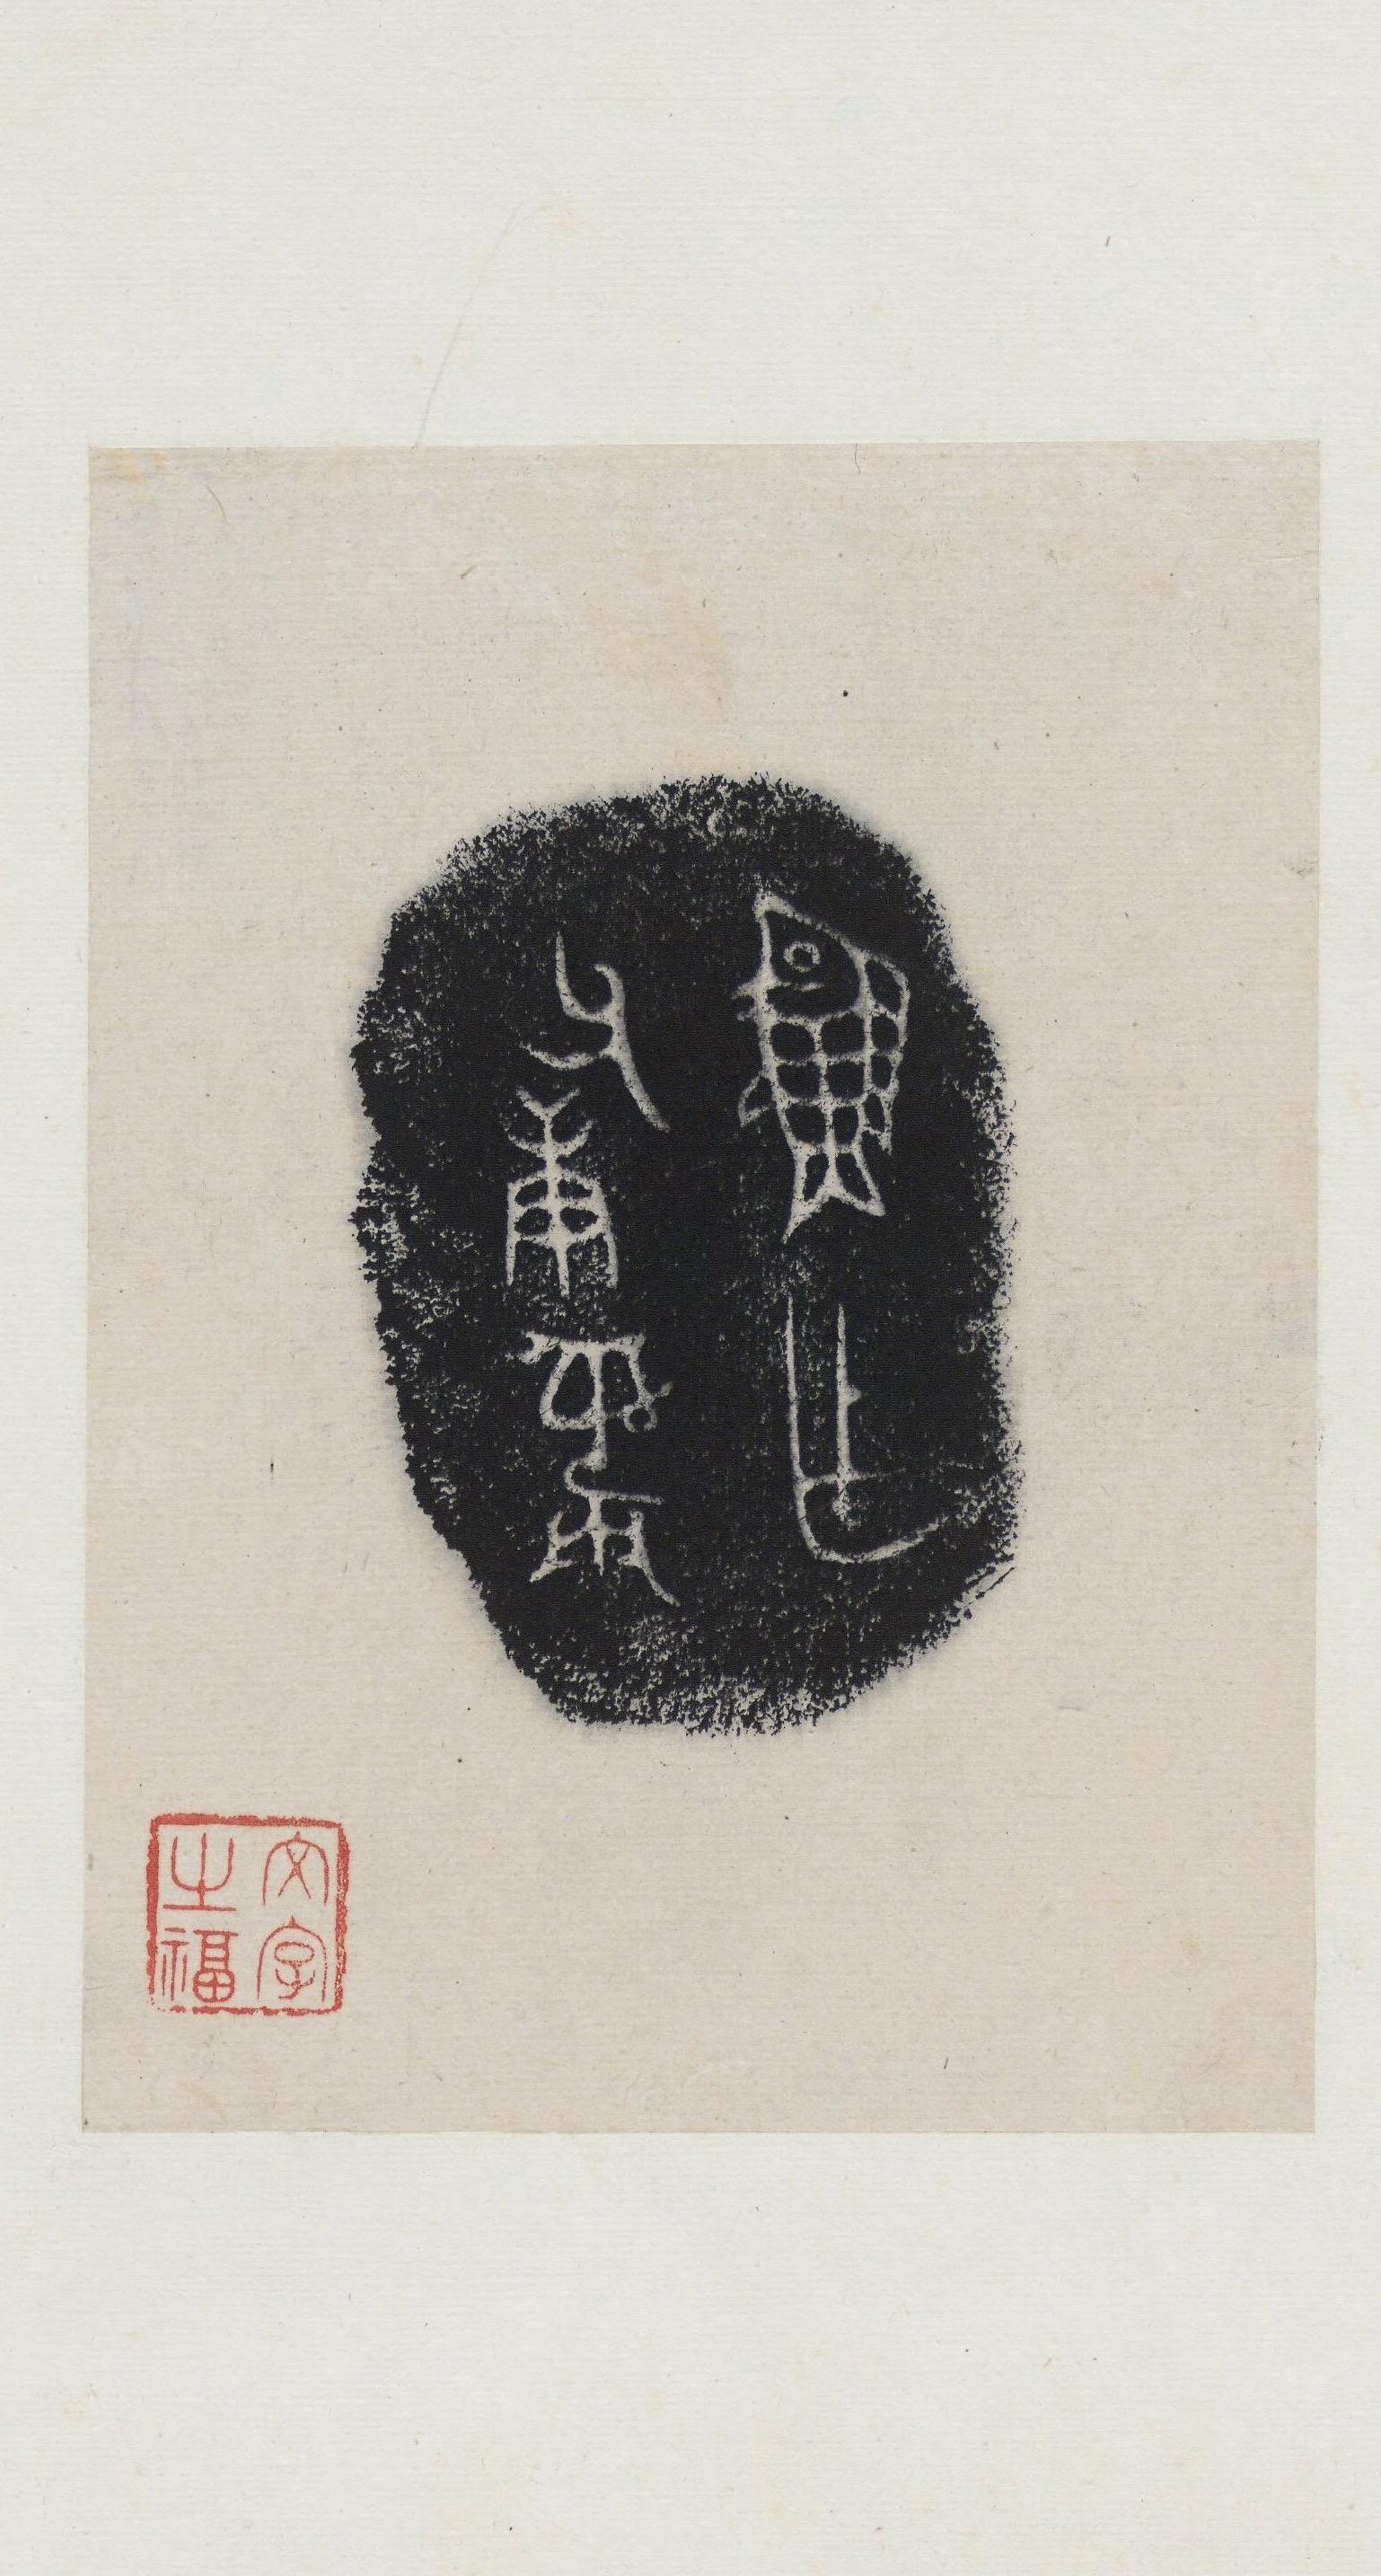 魚乍
父庚彝
文字
之福